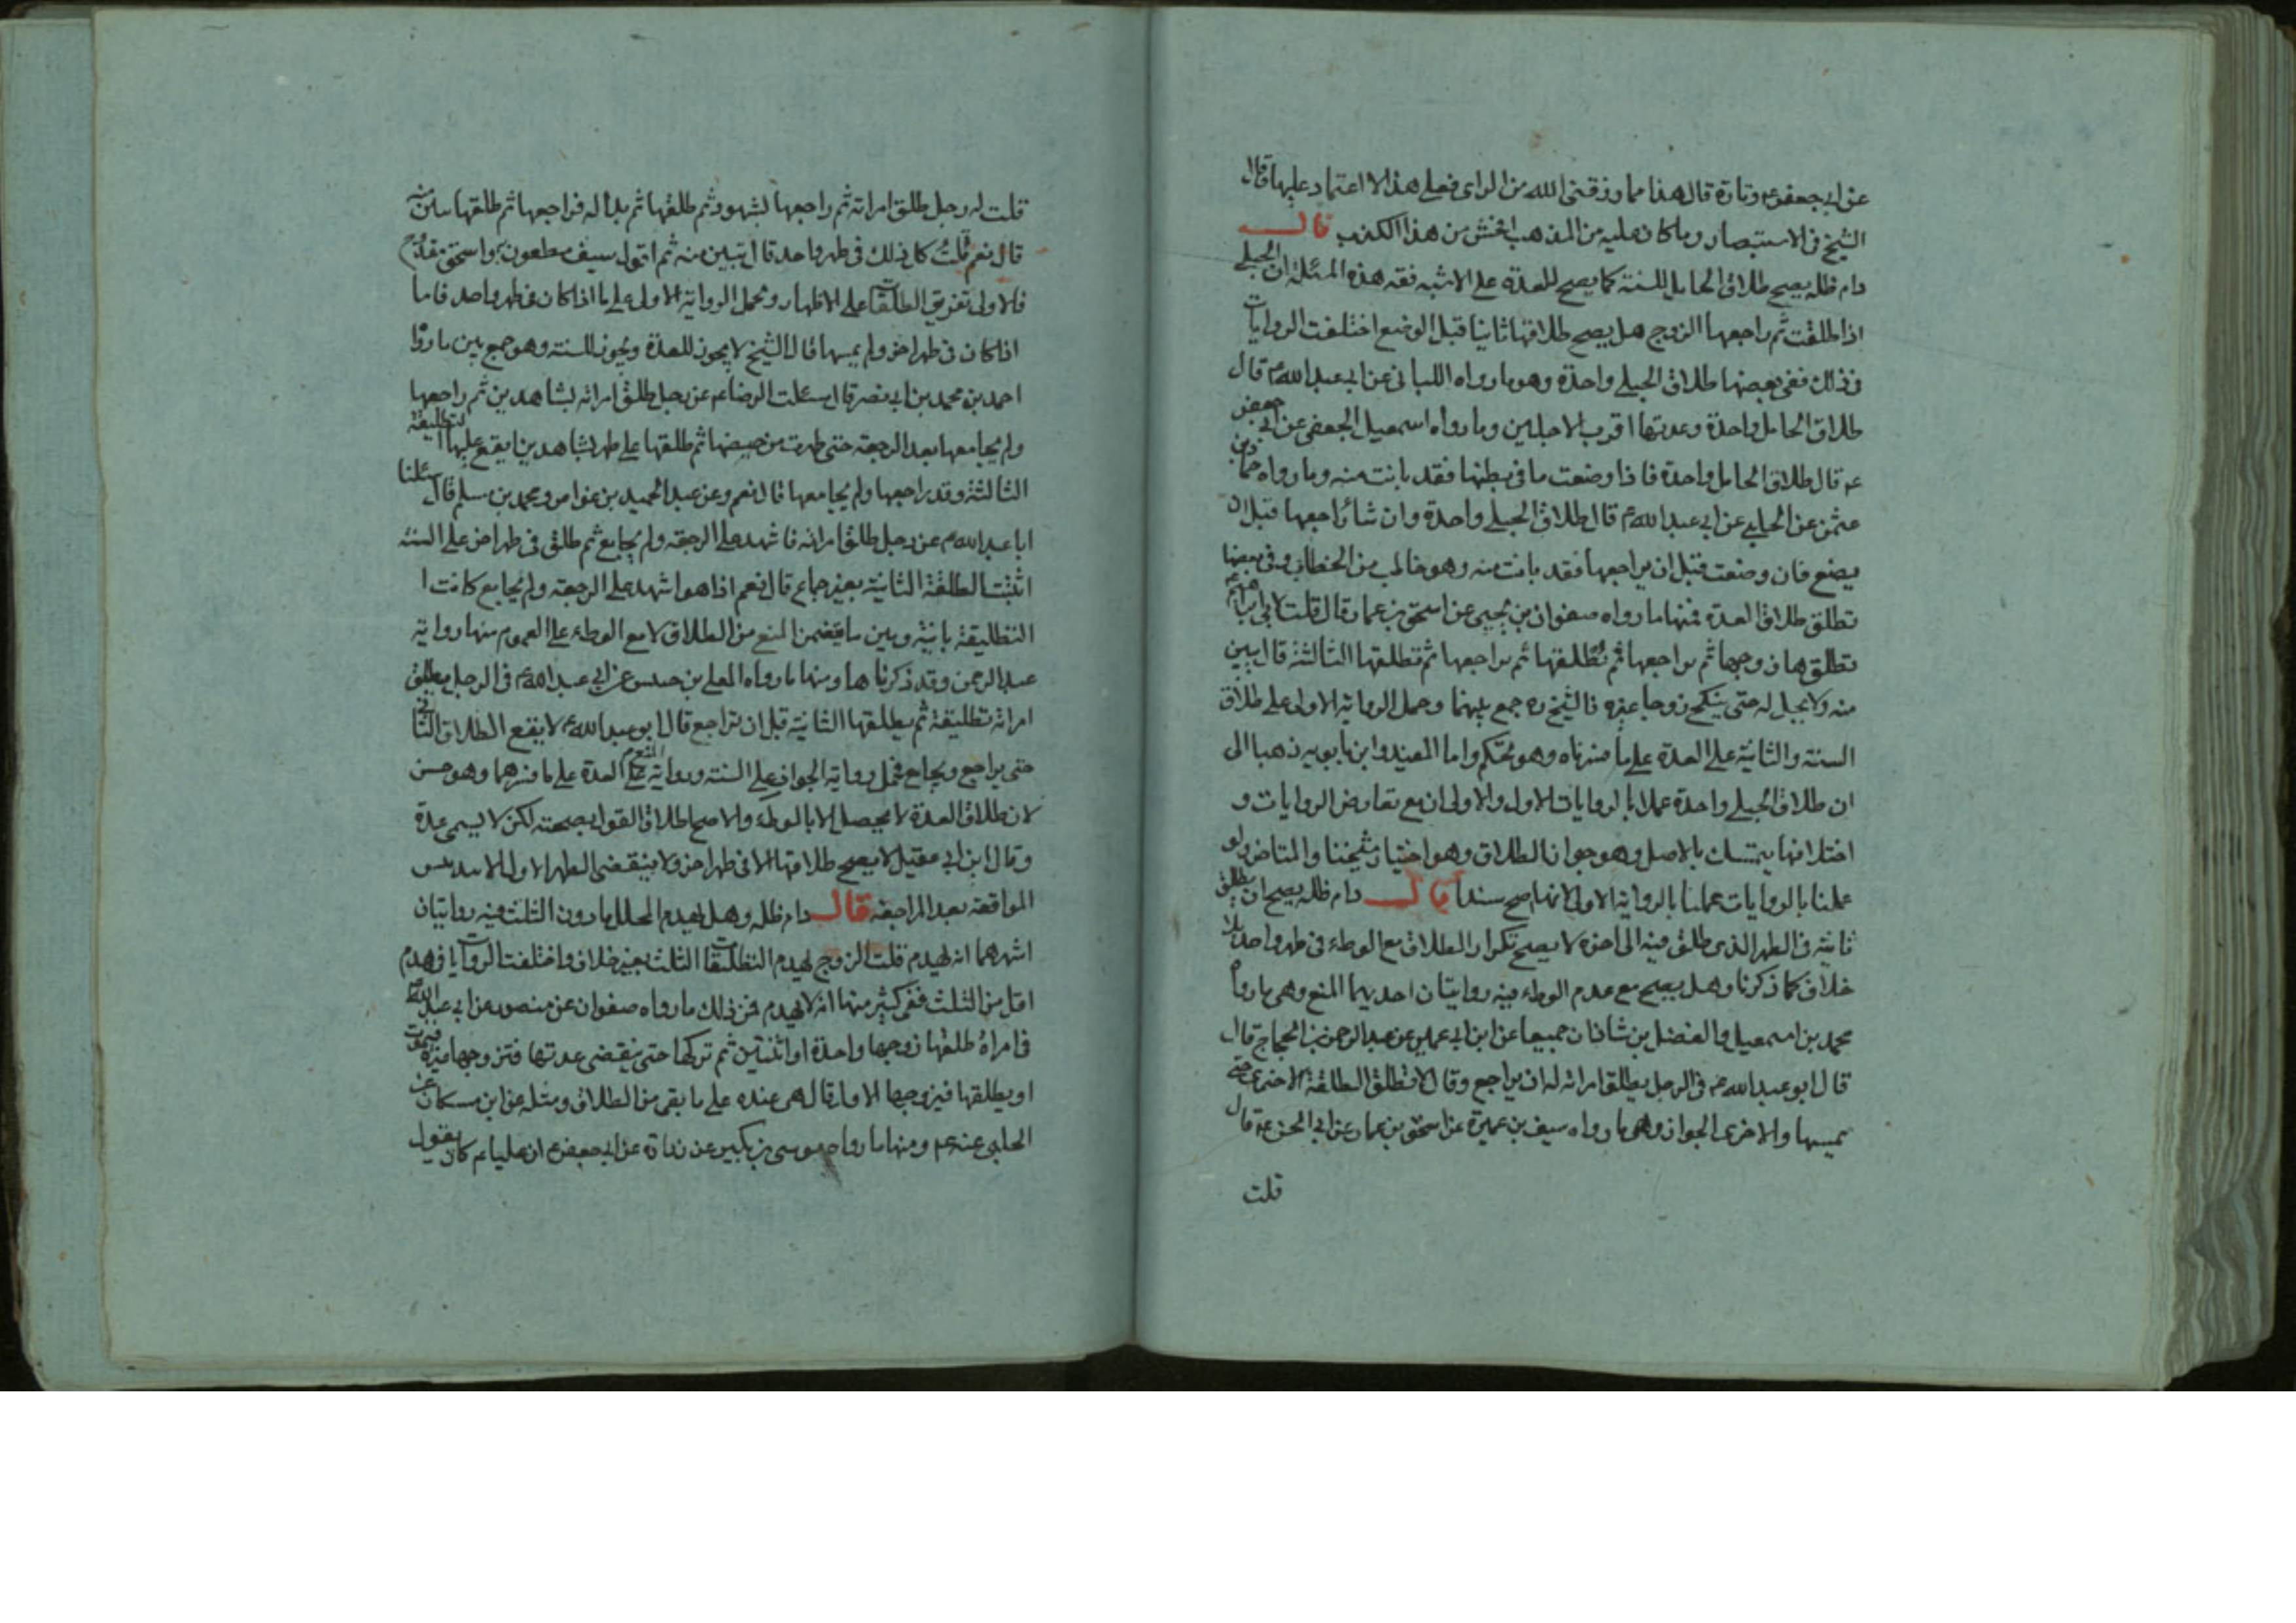 عن ابي جعفر ع وتارة قال هذا مما رزقني الله من الراى فعلى هذا لا اعتماد عليها قال
الشيخ في الاستبصار وما كان عليه من المذهب افحش من هذا الكذب قال
دام ظله يصح طلاق الحامل للسنة كما يصح للعدة على الاشبه فقه هذه المسئلة ان الحبلى
اذا طلقت ثم راجعها الزوج هل يصح طلاقها ثانيا قبل الوضع اختلفت الروايات
في ذلك ففي بعضها طلاق الحبلى واحدة وهو ما رواه الكناني عن ابي عبد الله ع قال
طلاق الحامل واحدة وعدتها اقرب الاجلين وما رواه اسمعيل الجعفى عن ابي جعفر
ع قال طلاق الحامل واحدة فاذا وضعت ما في بطنها فقد بانت منه وما رواه حماد بن
عثمن عن الحلبي عن ابي عبد الله ع قال طلاق الحبلى واحدة وان شاء راجعها قبل ان
يضع فان وضعت قبل ان يراجعها فقد بانت منه وهو خاطب من الخطاب وفي بعضها
تطلق طلاق العدة فمنها ما رواه صفوان بن يحيى عن اسحق بن عمار قال قلت لابي ابراهيم ع
تطلق ها زوجها ثم يراجعها ثم تطلقها ثم يراجعها ثم تطلقها الثالثة قال تبين
منه ولا يحل له حتى ينكح زوجا غيره فالشيخ ره جمع بينهما وحمل الرواية الاولى على طلاق
السنة والثانية على العدة على ما فسرناه وهو تحكم واما المفيد وابن بابويه ذهبا الى
ان طلاق الحبلى واحدة عملا بالروايات الاول والاولى ان مع تعارض الروايات و
اختلافها يتمسك بالاصل وهو جواز الطلاق وهو اختيار شيخنا والمتاخر ولو
عملنا بالروايات عملنا بالرواية الاولى لانها اصح سندا قال دام ظله يصح ان يطلق
ثانية في الطهر الذى طلق فيه الى اخره لا يصح تكرار الطلاق مع الوطء في طهر واحد بلا
خلاف كما ذكرنا وهل يصح مع عدم الوطء فيه روايتان احديهما المنع وهي ما رواه
محمد بن اسمعيل والفضل بن شاذان جميعا عن ابن ابي عمير عن عبد الرحمن بن الحجاج قال
قال ابو عبد الله ع في الرجل يطلق امراته له ان يراجع وقال لا تطلق التطليقة الاخرى حتى
يمسها والاخرى الجواز وهي ما رواه سيف بن عميرة عن اسحق بن عمار عن ابي الحسن ع قال
قلت
قلت له رجل طلق امراته ثم راجعها بشهود ثم طلقها ثم بدا له فراجعها ثم طلقها تبين منه
قال نعم قلت كل ذلك في طهر واحد قال تبين منه ثم اقول سيف مطعون واسحق
فالاولى تفريق الطلقات على الاطهار وتحمل الرواية الاولى على ما اذا كان في طهر واحد فاما
اذا كان في طهر اخر ولم يمسها قال الشيخ لا يجوز للعدة ويجوز للسنة وهو جمع بين ما رواه
احمد بن محمد بن ابي نصر قال سئلت الرضا ع عن رجل طلق امراته بشاهدين ثم راجعها
ولم يجامعها بعد الرجعة حتى طهرت من حيضها ثم طلقها على طهر بشاهدين ايقع عليها التطليقة
الثالثة وقد راجعها ولم يجامعها قال نعم وعن عبد الحميد بن عواض ومحمد بن مسلم قال سئلنا
ابا عبد الله ع عن رجل طلق امراته فاشهد على الرجعة ولم يجامع ثم طلق في طهر اخر على السنة
اثبتت الطلقة الثانية بغير جماع قال نعم اذا هو اشهد على الرجعة ولم يجامع كانت ا
التطليقة بانية وبين ما يتضمن المنع من الطلاق لا مع الوطء على العموم منها رواية
عبد الرحمن وقد ذكرناها ومنها ما رواه المعلى بن خنيس عن ابي عبد الله ع في الرجل يطلق
امراته تطليقة ثم يطلقها الثانية قبل ان تراجع قال ابو عبد الله ع لا يقع الطلاق الثاني
حتى يراجع ويجامع فحمل رواية الجواز على السنة ورواية المنع على العدة على ما فسرهما وهو حسن
لان طلاق العدة لا يحصل الا بالوطء والاصح اطلاق القول بصحته لكن لا يسمى عدة
وقال ابن ابي عقيل لا يصح طلاقها الا في طهر اخر ولا ينقضى الطهر الاول الا بتدنس
المواقعة بعد المراجعة قال دام ظله وهل يهدم المحلل ما دون الثلث فيه روايتان
اشهرهما انه يهدم قلت الزوج يهدم التطليقات الثلث بغير خلاف واختلفت الروايات في هدم
اقل من الثلث ففي كثير منها انه لا يهدم فمن ذلك ما رواه صفوان عن منصور عن ابي عبد الله ع
في امراة طلقها زوجها واحدة او اثنتين ثم تركها حتى ينقضى عدتها فتزوجها غيره فيموت
او يطلقها فيزوجها الاول قال هي عنده على ما بقى من الطلاق ومثله عن ابن مسكان عن
الحلبي عنه ع ومنها ما رواه موسى بن بكير عن زرارة عن ابي جعفر ع ان عليا ع كان يقول